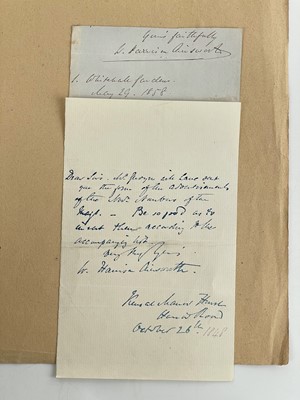 Yours faithfully
W. Harrison Ainsworth
1. Whitehall Gardens
July 29. 1858
Dear Sirs. Mr
you the form of the advertisements
of the Nov. Numbers of the
Be so good as to
insert them according to the
accompanying list.
Very truly yours
W. Harrison Ainsworth.
Kensal Manor House
Harrow Road
October 26th 1848